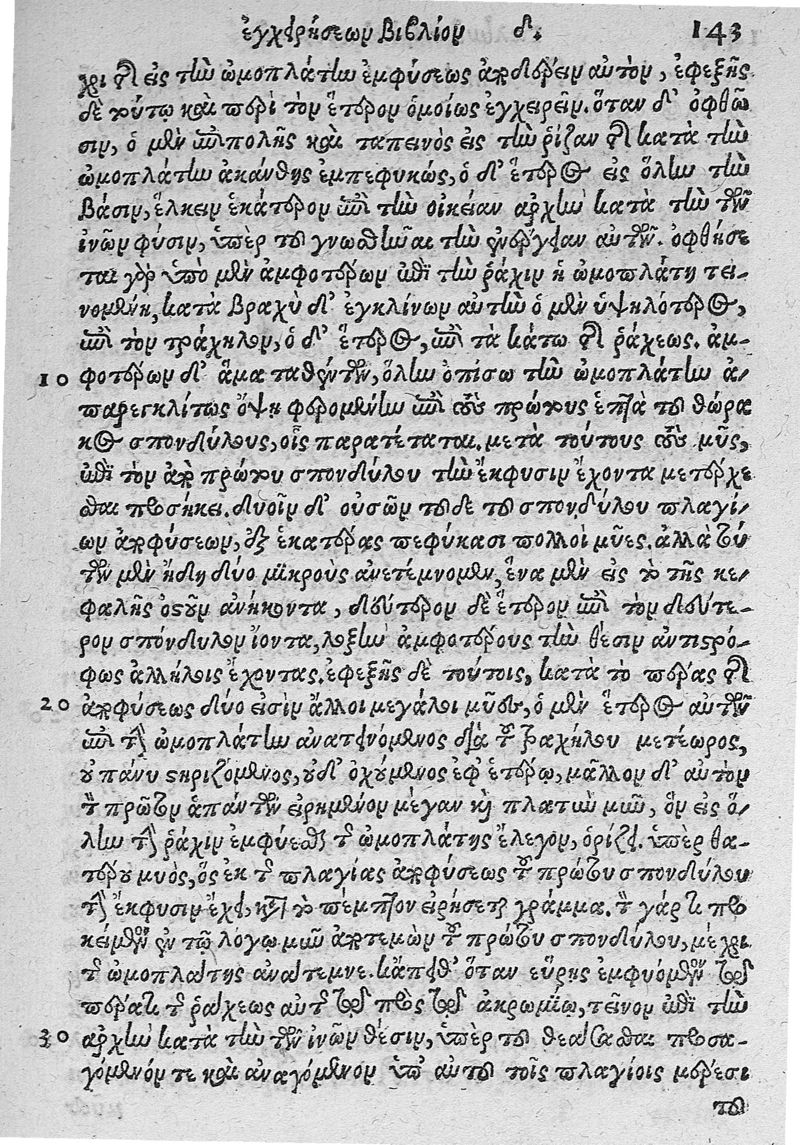 ἐγχειρήσεων βιβλίον δ. 143
χρι τῆς εἰς τὴν ὠμοπλάτην ἐμφύσεως ἀποδιαιρεῖν αὐτὸν, ἐφεξῆς
δὲ τούτῳ καὶ περὶ τὸν ἕτερον ὁμοίως ἐγχειρεῖν. ὅταν δ' ὀφθῶ
σιν, ὁ μὲν ἐπιπολῆς καὶ ταπεινὸς εἰς τὴν ῥίζαν τῆς κατὰ τὴν
ὠμοπλάτην ἀκάνθης ἐμπεφυκώς, ὁ δ' ἕτερος εἰς ὅλην τὴν
βάσιν, ἕλκειν ἑκάτερον ἐπὶ τὴν οἰκείαν ἀρχὴν κατὰ τὴν τῶν
ἰνῶν φύσιν, ὑπὲρ τοῦ γνωσθῆναι τὴν ἐνέργειαν αὐτῶν. ὀφθήσε
ται γὰρ ὑπὸ μὲν ἀμφοτέρων ἐπὶ τὴν ῥάχιν ἡ ὠμοπλάτη τει-
νομένη, κατὰ βραχὺ δ' ἐγκλίνων αὐτὴν ὁ μὲν ὑψηλότερος,
ἐπὶ τὸν τράχηλον, ὁ δ' ἕτερος, ἐπὶ τὰ κάτω τῆς ῥάχεως. ἀμ-
10 φοτέρων δ' ἅμα ταθέντων, ὅλην ὀπίσω τὴν ὠμοπλάτην ἀ-
παρεγκλίτως ὄψῃ φερομένην ἐπὶ τοὺς πρώτους ἑπτὰ τοῦ θώρα
κος σπονδύλους, οἷς παρατέταται. μετὰ τούτους τοὺς μῦς,
ἐπὶ τὸν ἀπὸ πρώτου σπονδύλου τὴν ἔκφυσιν ἔχοντα μετέρχε
σθαι προσήκει. δυοῖν δ' οὐσῶν τοῦδε τοῦ σπονδύλου πλαγί-
ων ἀποφύσεων, ἐξ ἑκατέρας πεφύκασι πολλοὶ μῦες. ἀλλὰ τού
των μὲν ἤδη δύο μικροὺς ἀνετέμνομεν, ἕνα μὲν εἰς τὸ τῆς κε-
φαλῆς ὀστοῦν ἀνήκοντα, δεύτερον δὲ ἕτερον ἐπὶ τὸν δεύτε-
ρον σπόνδυλον ἰόντα, λοξὴν ἀμφοτέρους τὴν θέσιν ἀντιστρό-
φως ἀλλήλοις ἔχοντας. ἐφεξῆς δὲ τούτοις, κατὰ τὸ πέρας τῆς
20 ἀποφύσεως δύο εἰσὶν ἄλλοι μεγάλοι μῦες, ὁ μὲν ἕτερος αὐτῶν
ἐπὶ τὴν ὠμοπλάτην ἀνατεινόμενος διὰ τοῦ τραχήλου μετέωρος,
οὐ πάνυ στηριζόμενος, οὐδ' ὀχούμενος ἐφ' ἑτέρῳ, μᾶλλον δ' αὐτὸν
τὸν πρῶτον ἁπάντων εἰρημένον μέγαν καὶ πλατὺν μῦν, ὃν εἰς ὅ-
λην τὴν ῥάχιν ἐμφύεσθαι τῆς ὠμοπλάτης ἔλεγον, ὁρίζει. ὑπὲρ θα-
τέρου μυὸς, ὃς ἐκ τῆς πλαγίας ἀποφύσεως τοῦ πρώτου σπονδύλου
τὴν ἔκφυσιν ἔχει, κατὰ τὸ πέμπτον εἰρήσεται γράμμα. τὸν γάρ τοι προ
κείμενον ἐν τῷ λόγῳ μῦν ἀποτεμὼν τοῦ πρώτου σπονδύλου, μέχρι
τῆς ὠμοπλάτης ἀνάτεμνε. κἄπειθ' ὅταν εὕρῃς ἐμφυόμενον τῷ
πέρατι τῆς ῥάχεως αὐτῆς τῷ πρὸς τῷ ἀκρωμίῳ, τεῖνον ἐπὶ τὴν
30 ἀρχὴν κατὰ τὴν τῶν ἰνῶν θέσιν, ὑπὲρ τοῦ θεάσασθαι προσα-
γόμενόν τε καὶ ἀναγόμενον ὑπ' αὐτοῦ τοῖς πλαγίοις μέρεσι
τοῦ